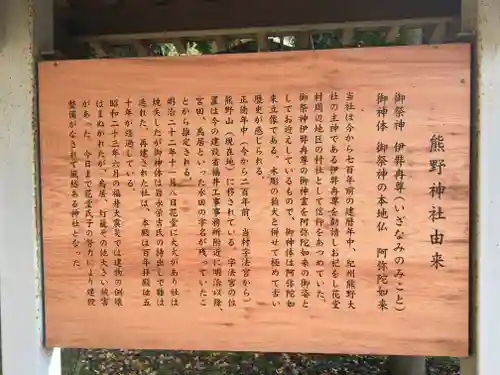 熊野神社由来
御祭神　伊弉冉尊（いざなみのみこと）
御神体　御祭神の本地仏　阿弥陀如来
当社は今から七百年前の建暦年中、紀州熊野大
社の主神である伊弉冉尊を勧請しお祀をし花堂
村周辺地区の村社として信仰をあつめていた。
御祭神伊弉冉尊の御神霊を阿弥陀如来の御姿と
してお迎えしているもので、御神体は阿弥陀如
来立像である。木彫の狛犬と併せて極めて古い
歴史が感じられる。
正徳年中（今から二百年前、当村字法宮から）
熊野山（現在地）に移されている。字法宮の位
置は今の建設省福井工事事務所附近に明治以降、
宮田、鳥居といった水田の字名が残っていたこ
とから推定される。
明治二十二年十一月八日花堂に大火があり社は
焼失したが御神体は
の持出しで難は
逃れた。再建された社は、本殿は百年拝殿は五
十年が経過している。
昭和二十三年六月の福井大震災では建物の倒壊
はまぬがれたが、鳥居、灯籠その他大きい被害
があった。今日まで花堂氏子の努力により建設
整備がなされて風格ある神社となった。